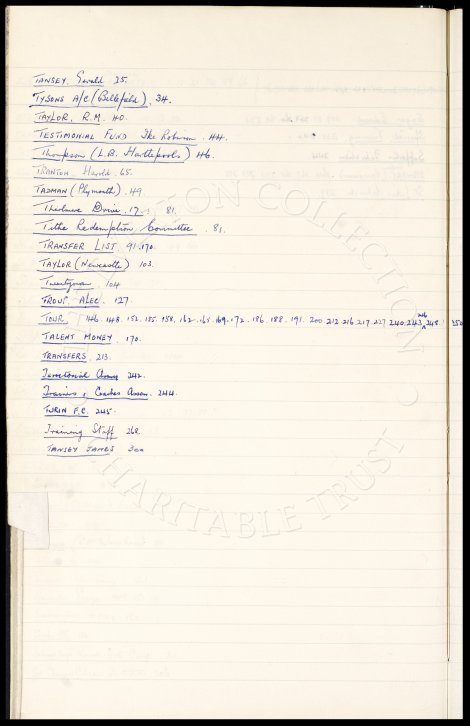 TANSEY, Gerald 25.
TYSONS A/C (Bellefield). 34.
TAYLOR, R.M. 40.
TESTIMONIAL FUND Ike Robinson. 44.
Thompson (L.B. Hartlepools) 46.
TRANTON, Harold. 65.
TADMAN (Plymouth). 49
Drive. 17. 81.
Tithe Redemption Committee. 81.
TRANSFER LIST. 91. 170.
TAYLOR (Newcastle) 103.
Twentyman 104
TROUP, ALEC. 127.
TOUR. 146. 148. 152. 155. 158. 162. 165. 169. 172. 186. 188. 191. 200. 212. 216. 217. 227. 240. 243. 246 248. 250
TALENT MONEY. 170.
TRANSFERS. 213.
Territorial Army 242.
Trainers & Coaches Assn. 244.
TURIN F.C. 245.
Training Staff 268.
TANSEY JAMES 300
TON COLLECTION
CHARITABLE TRUST